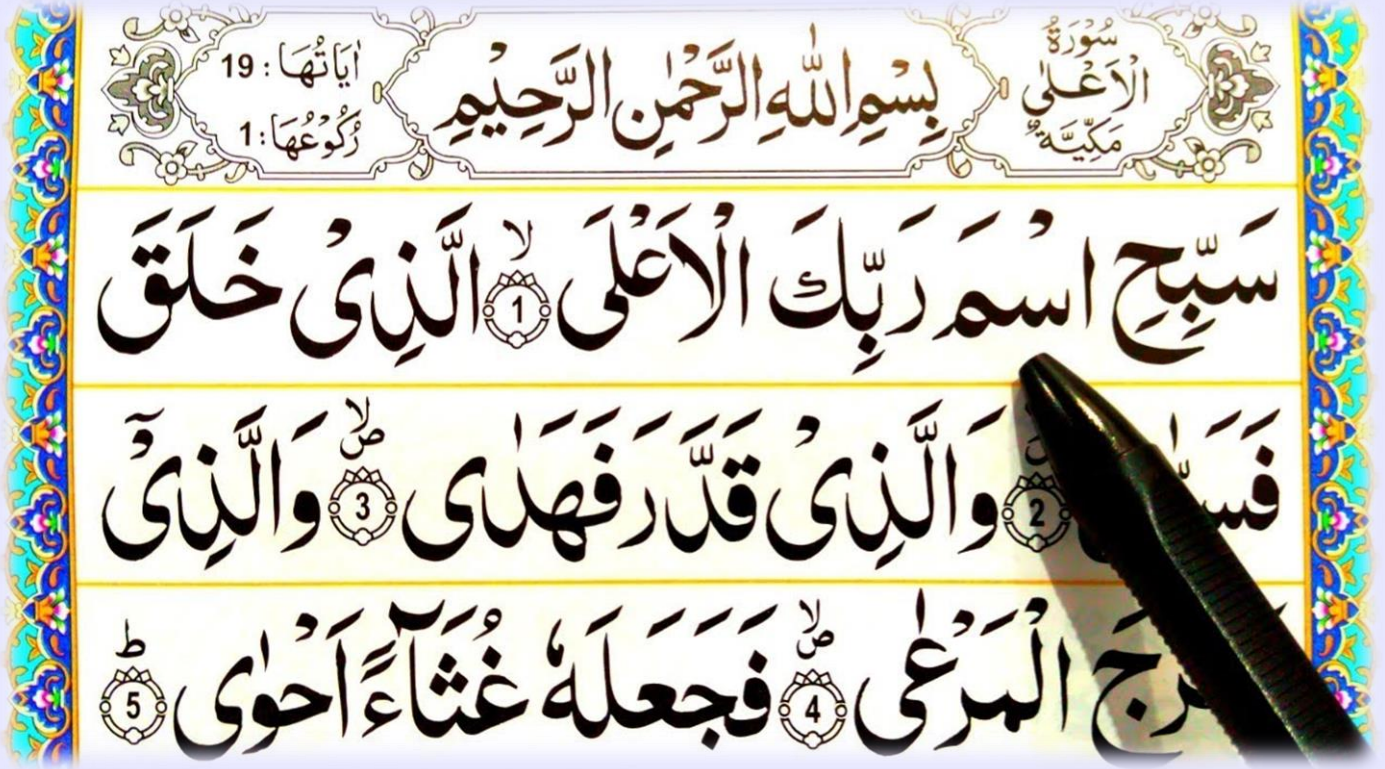 سُوْرَةُ
الْاَعْلٰى
مَكِّيَّةٌ
بِسْمِ اللّٰهِ الرَّحْمٰنِ الرَّحِيْمِ
اٰيَاتُهَا : 19
رُكُوْعُهَا : 1
سَبِّحِ اسْمَ رَبِّكَ الْاَعْلَى ۙ 1 الَّذِىْ خَلَقَ
2 وَالَّذِىْ قَدَّرَ فَهَدٰى 3 ۪ۙ وَالَّذِىْۤ
الْمَرْعٰى 4 ۪ۙ فَجَعَلَهٗ غُثَآءً اَحْوٰى 5 ؕ